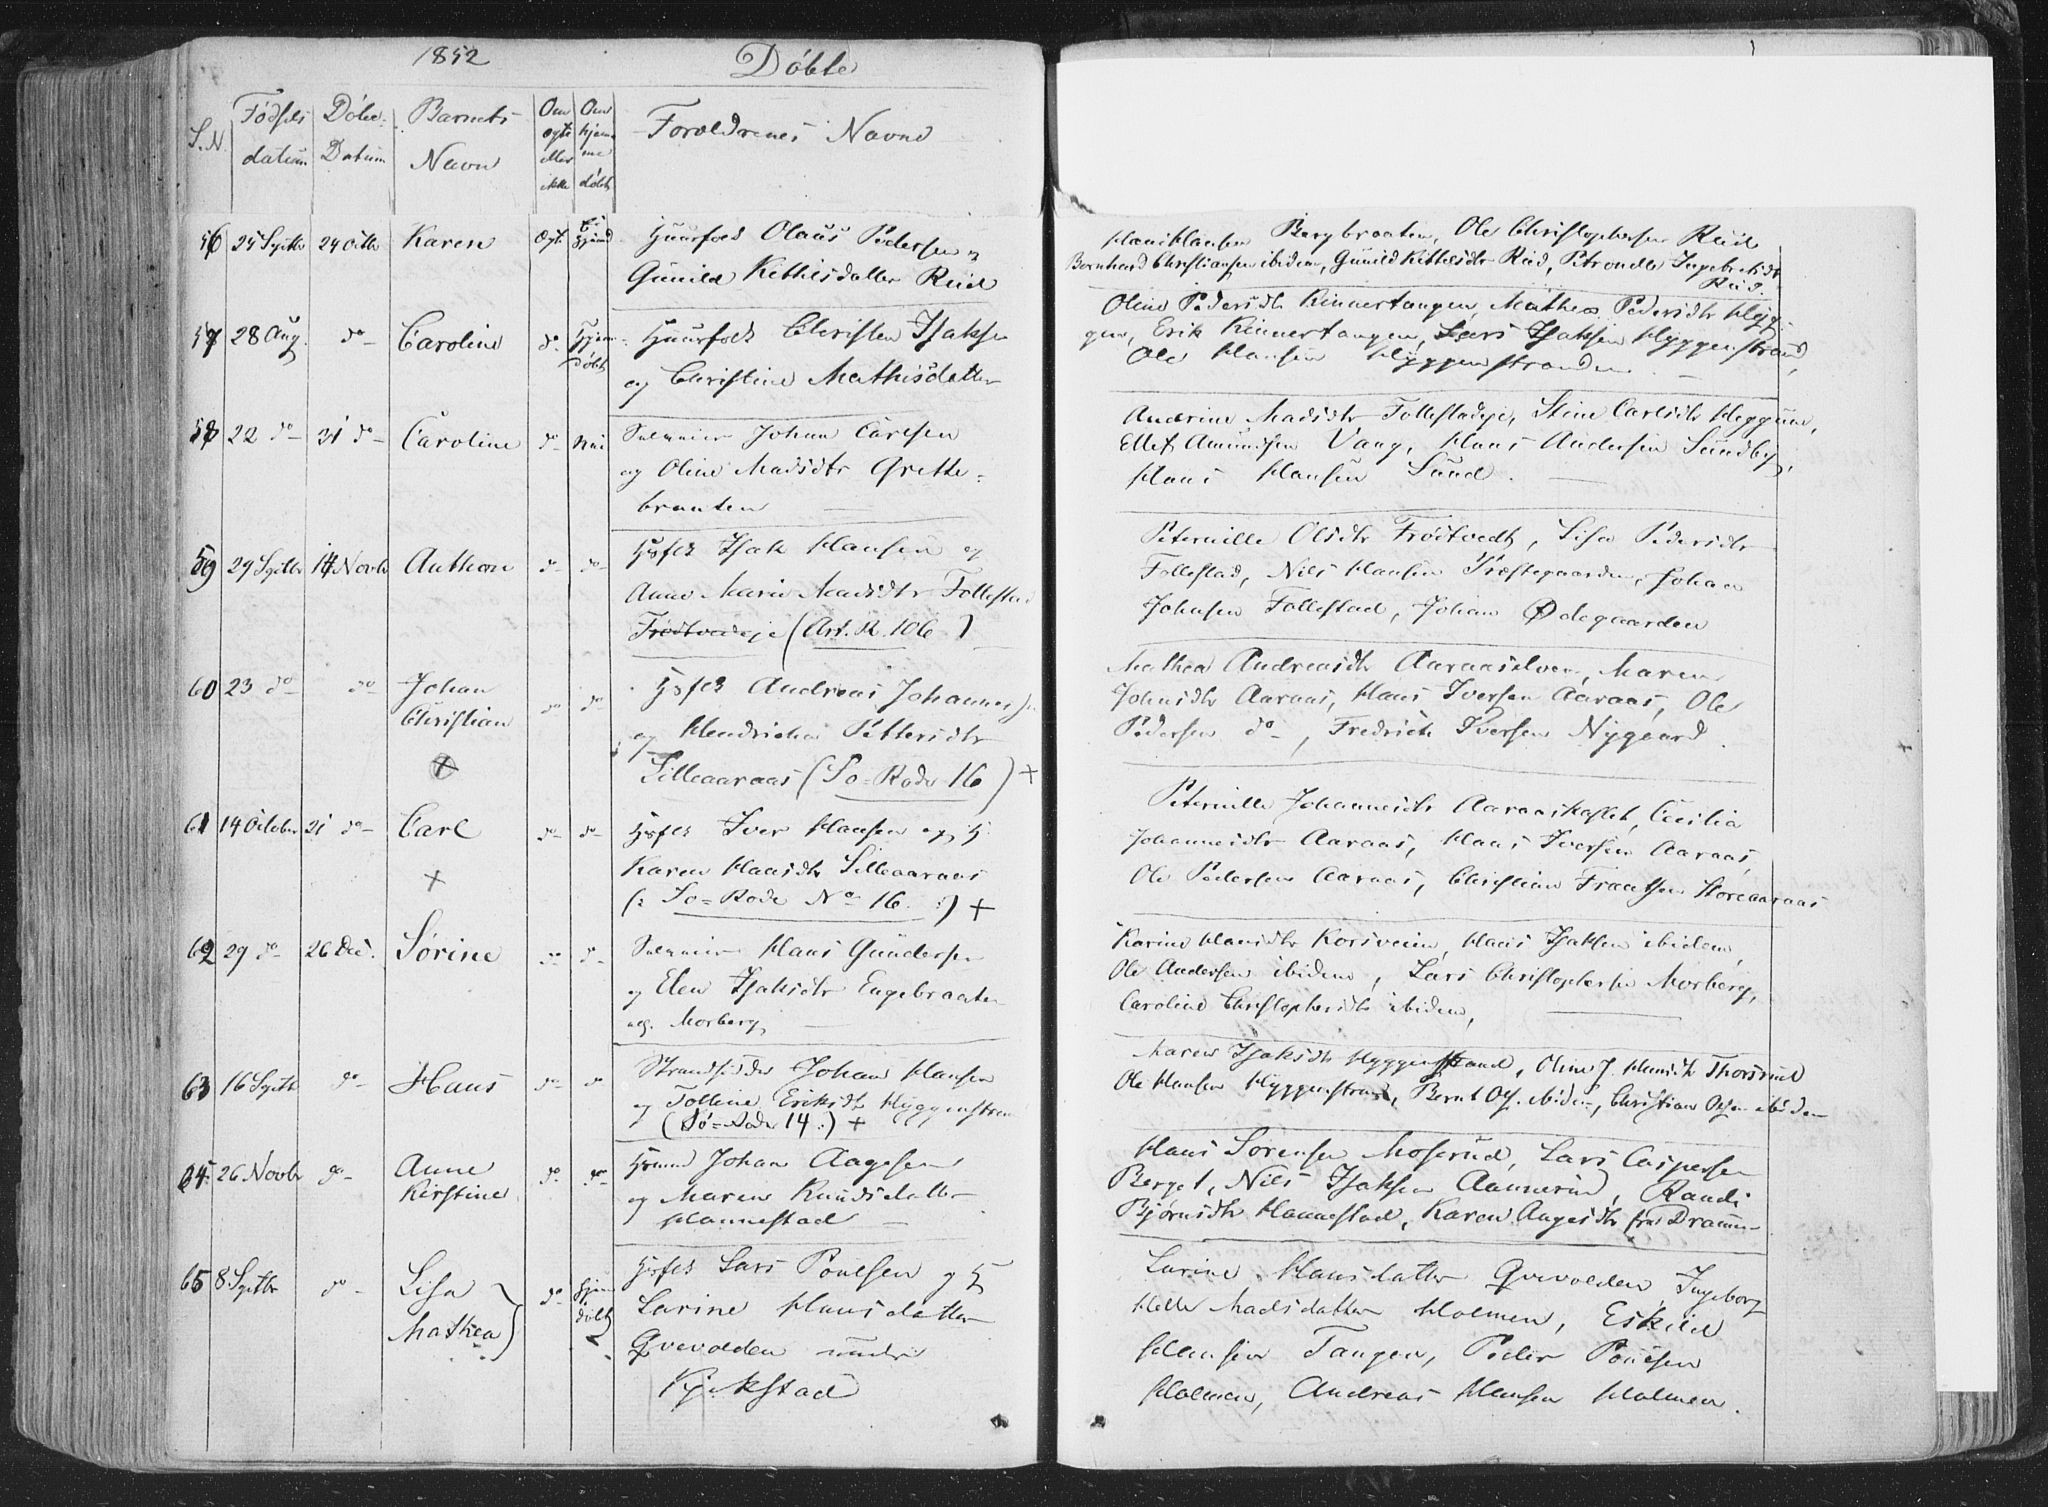 1852 Døbte
S.N. Fødsels datum Døbe- Datum Barnets Navn Om ægte eller ikke Om hjemme døbt Forældrenes Navne
56 25 Septbr 24 Octbr Karen Ægt. Huusfolk Olaus Pedersen og
Gunild Kittilsdatter Rud
57 28 Aug. do Caroline do Hjemdøbt Huusfolk Christen Isaksen
og Christine Mathisdatter
58 22 do 31 do Caroline do Nei Johan Carlsen
og Oline Madsdtr Grette-
braaten
59 29 Septbr 14 Novbr Anthon do do Hsfolk Isak Hansen og
Anne Marie Madsdtr Follestad
Frødtvedeje (Art. R. 106)
60 23 do do Johan Christian do do Hsfolk Andreas Johannesen
og Hendricka Pettersdtr
Lilleaaraas (So-Rode 16) +
61 14 October 21 do Carl do do Hsfolk Iver Hansen og H
Karen Hansdtr Lilleaaraas
(: So-Rode No 16. :) +
62 29 do 26 Dec. Sørine do do Hans Gundersen
og Elen Isaksdtr Engebraaten
Morberg
63 16 Septbr do Hans do do Strandsidder Johan Hansen
og Tollene Eriksdtr Hyggenstrand
(Sø-Rode 14 :) +
64 26 Novbr do Anne Kirstine do do Johan Aagesen
og Maren Knudsdatter
Hannestad
65 8 Septbr do Lisa Mathea do Hjemdøbt Hsfolk Lars Poulsen og H
Larine Hansdatter
Gvevolden under
Kjekstad
Hans Hansen Bergbraaten, Ole Christophersen Rud
Bernhard Christiansen ibidem, Gunild Kittilsdtr Rud, Petronelle Ingebretsdtr
Rud.
Oline Pedersdtr Kinnertangen, Mathea Pedersdtr Hyg-
gen, Erik Kinnertangen, Lars Isaksen Hyggenstrand,
Ole Hansen Hyggenstranden.
Andrine Madsdtr Follestadeje, Stine Carlsdtr Heggum,
Ellef Amundsen Vang, Hans Andersen Sundby,
Hans Hansen Sund.
Peternille Olsdtr Frødtvedt, Lisa Pedersdtr
Follestad, Nils Hansen Præstegaarden, Johan
Johnsen Follestad, Johan Ødegaarden
Mathea Andreasdtr Aaraaselven, Maren
Johnsdtr Aaraas, Hans Iversen Aaraas, Ole
Pedersen do, Fredrich Iversen Nygaard.
Peternille Johannesdtr Aaraaskaslet, Cecilia
Johannesdtr Aaraas, Hans Iversen Aaraas,
Ole Pedersen Aaraas, Christian Frantsen Storeaaraas
Karine Hansdtr Korsveien, Hans Isaksen ibidem,
Ole Andersen ibidem, Lars Christophersen Morberg,
Caroline Christophersdtr ibidem,
Maren Isaksdtr Hyggenstrand, Oline J. Hansdtr Thorsrud
Ole Hansen Hyggenstrand, Bernt Ols. ibidem, Christian Olsen ibidem
Hans Sørensen Moserud, Lars Caspersen
Berget, Nils Isaksen Aannerud, Randi
Bjørnsdtr Hannestad, Karen Aagesdtr fra Drammen
Larine Hansdatter Gvevolden, Ingeborg
Helle Madsdatter Holmen, Eskild
Hansen Tangen, Peder Poulsen
Holmen, Andreas Hansen Holmen.